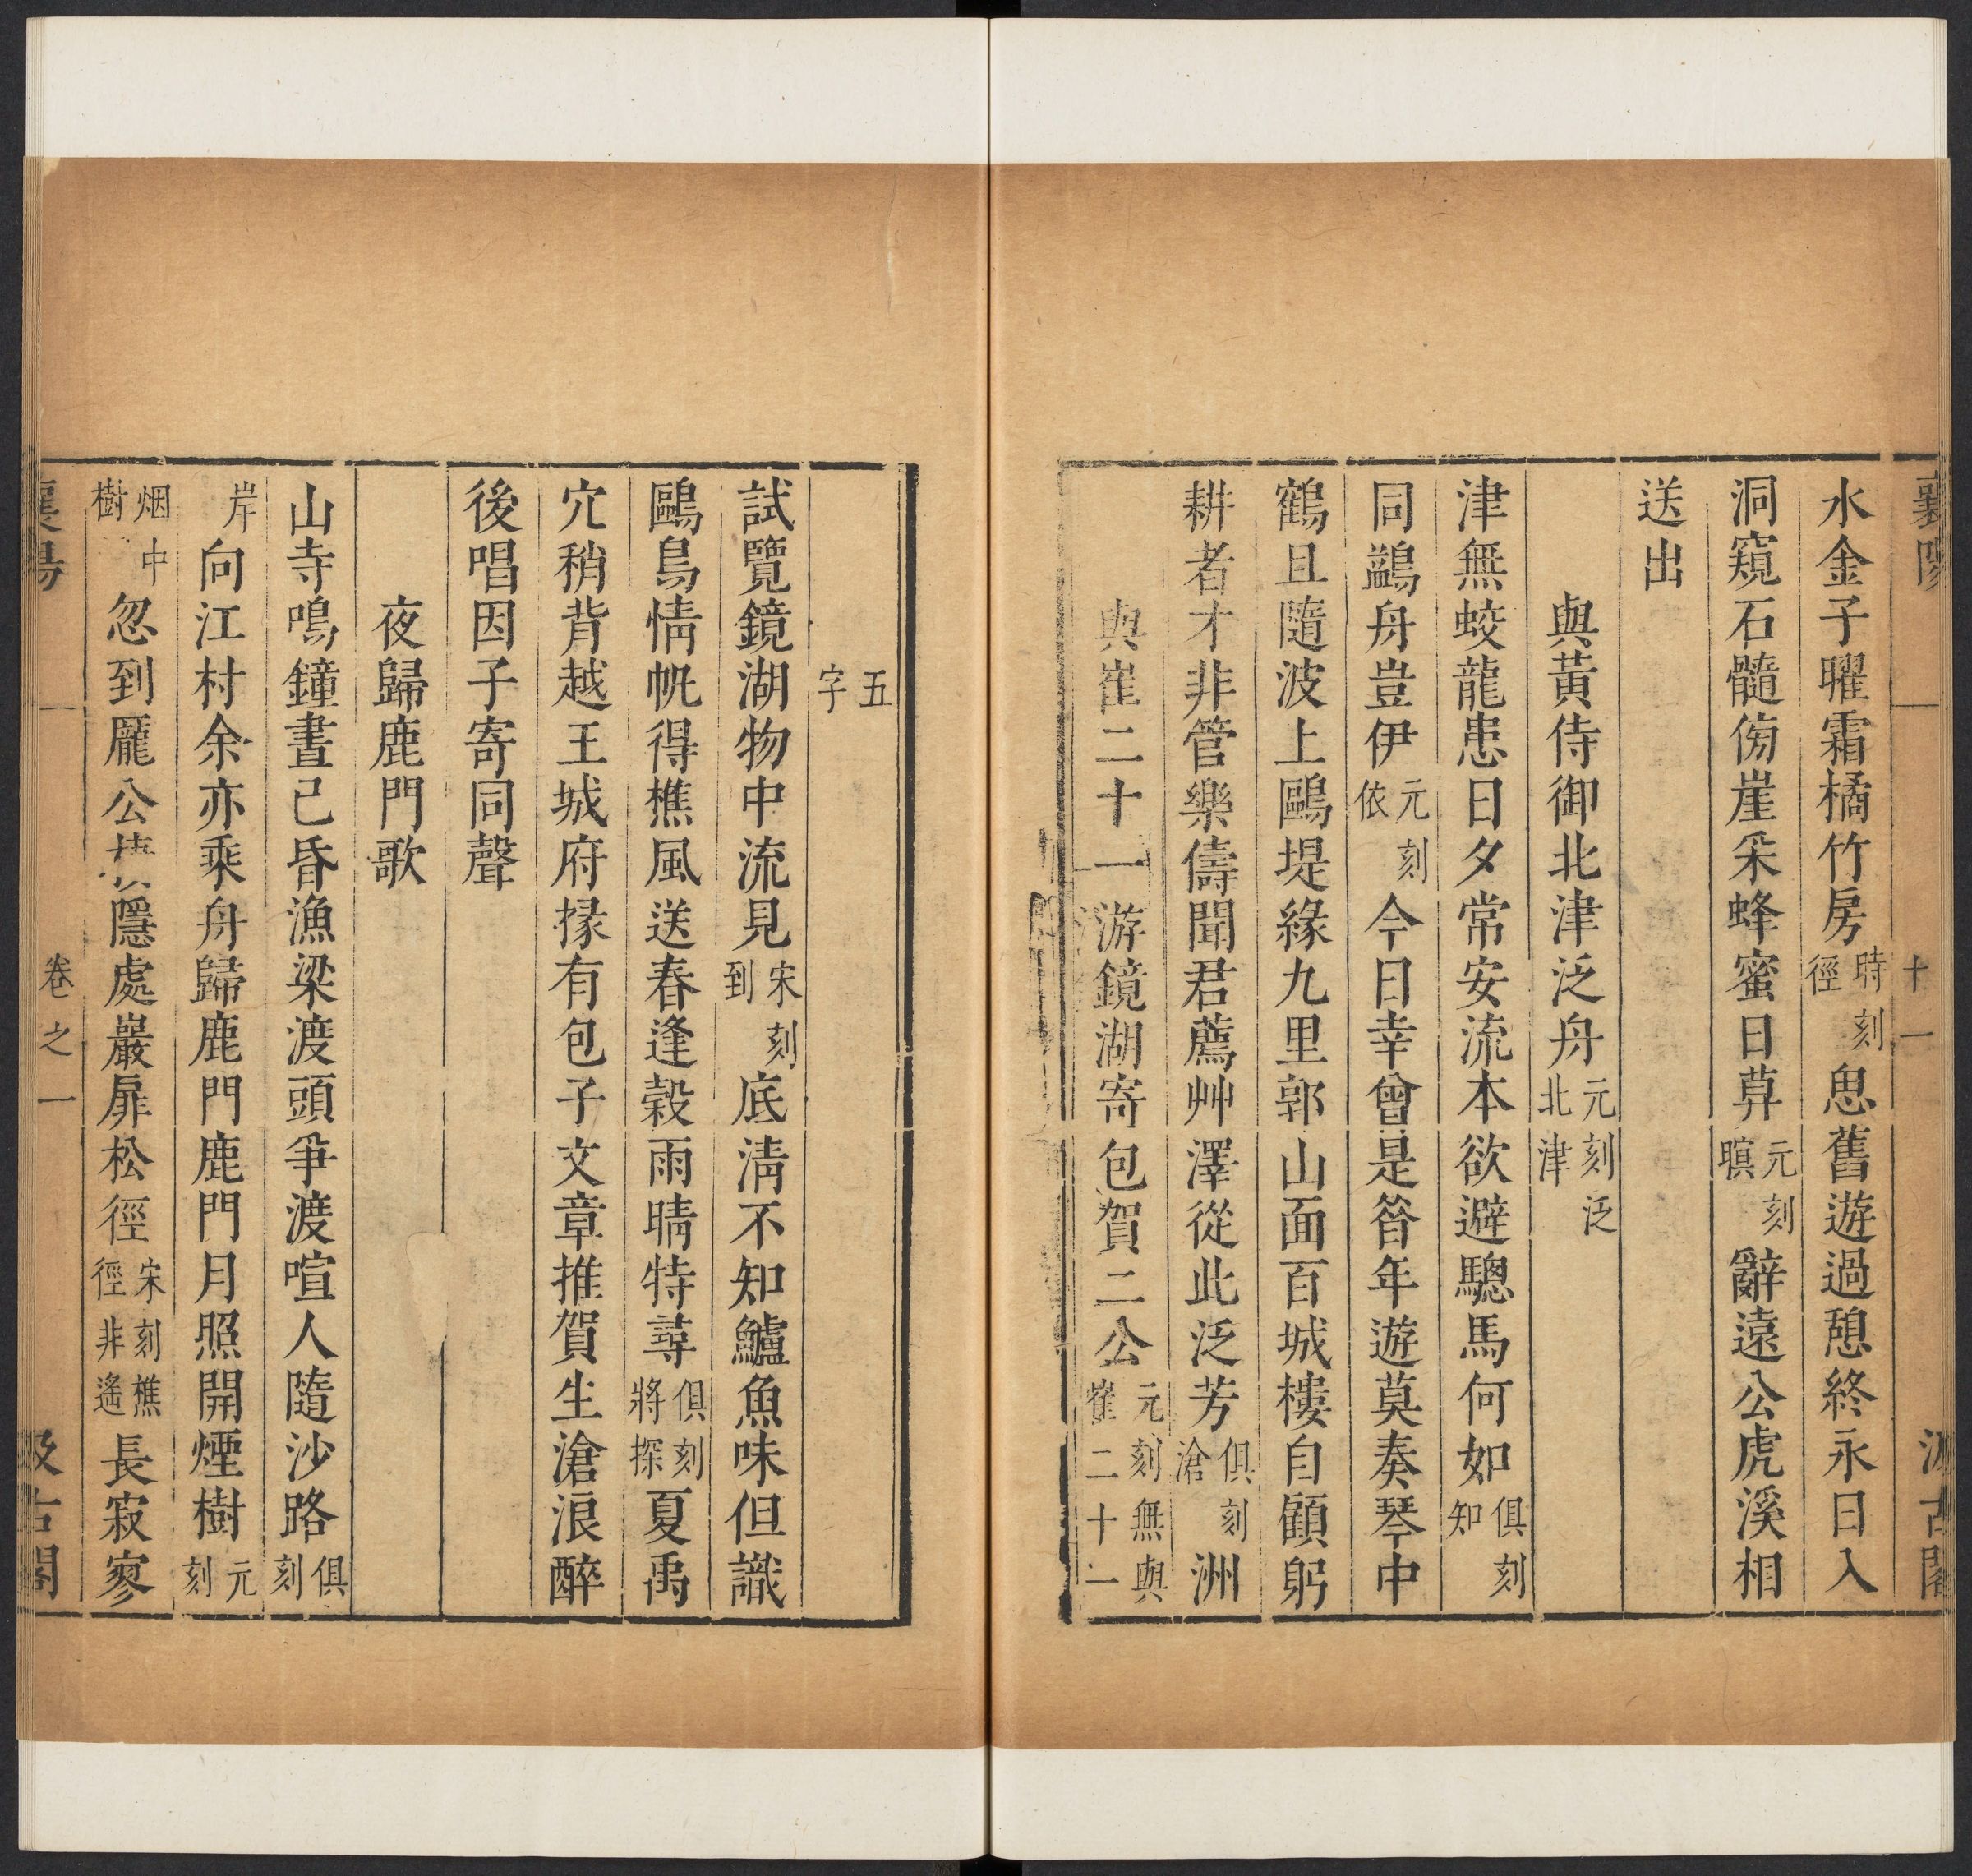 襄陽 十一 汲古閣
水金子曜霜橘竹房時刻徑思舊遊過憩終永日入
洞窺石髓傍崖采蜂蜜日莫元刻暝辭遠公虎溪相
送出
與黃侍御北津泛舟元刻泛北津
津無蛟龍患日夕常安流本欲避驄馬何如俱刻知
同鷁舟豈伊元刻依今日幸曾是昝年遊莫奏琴中
鶴且隨波上鷗堤緣九里郭山面百城樓自顧躬
耕者才非管樂儔聞君薦艸澤從此泛芳俱刻滄洲
與崔二十一游鏡湖寄包賀二公元刻無與崔二十一
五字
試覽鏡湖物中流見宋刻到底淸不知鱸魚味但識
鷗鳥情帆得樵風送春逢穀雨晴特尋俱刻將探夏禹
穴稍背越王城府掾有包子文章推賀生滄浪醉
後唱因子寄同聲
夜歸鹿門歌
山寺鳴鐘晝已昏漁梁渡頭爭渡喧人隨沙路俱刻
岸向江村余亦乘舟歸鹿門鹿門月照開煙樹元刻
烟中樹忽到龐公棲隱處巖扉松徑宋刻樵徑非遙長寂寥
襄陽 卷之一 汲古閣